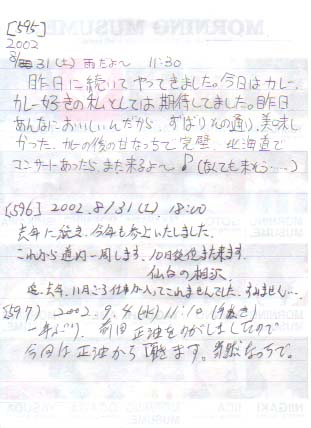 [595]
2002
8/31(土) 雨だよ〜 11:30
昨日に続いてやってきました。今日はカレー。
カレー好きの私としては期待してました。昨日
あんなにおいしいんだから、ずばりその通り、美味し
かった。カレーの後の甘なっちで完璧、北海道で
コンサートあったら、また来るよ〜♪(なくても来そう……)
[596] 2002.8/31(土) 18:00
去年に続き、今年も参上いたしました。
これから道内一周します、10日後位、また来ます。
仙台の相沢
去年、11月ごろ仕事が入ってこれませんでした、すみません…。
(597) 2002.9.4(水) 11:10 (
一年ぶり、前回正油をのがしましたので
今日は正油から頂きます。当然なっちで。
MORNING MUSUME
NIIGAKI